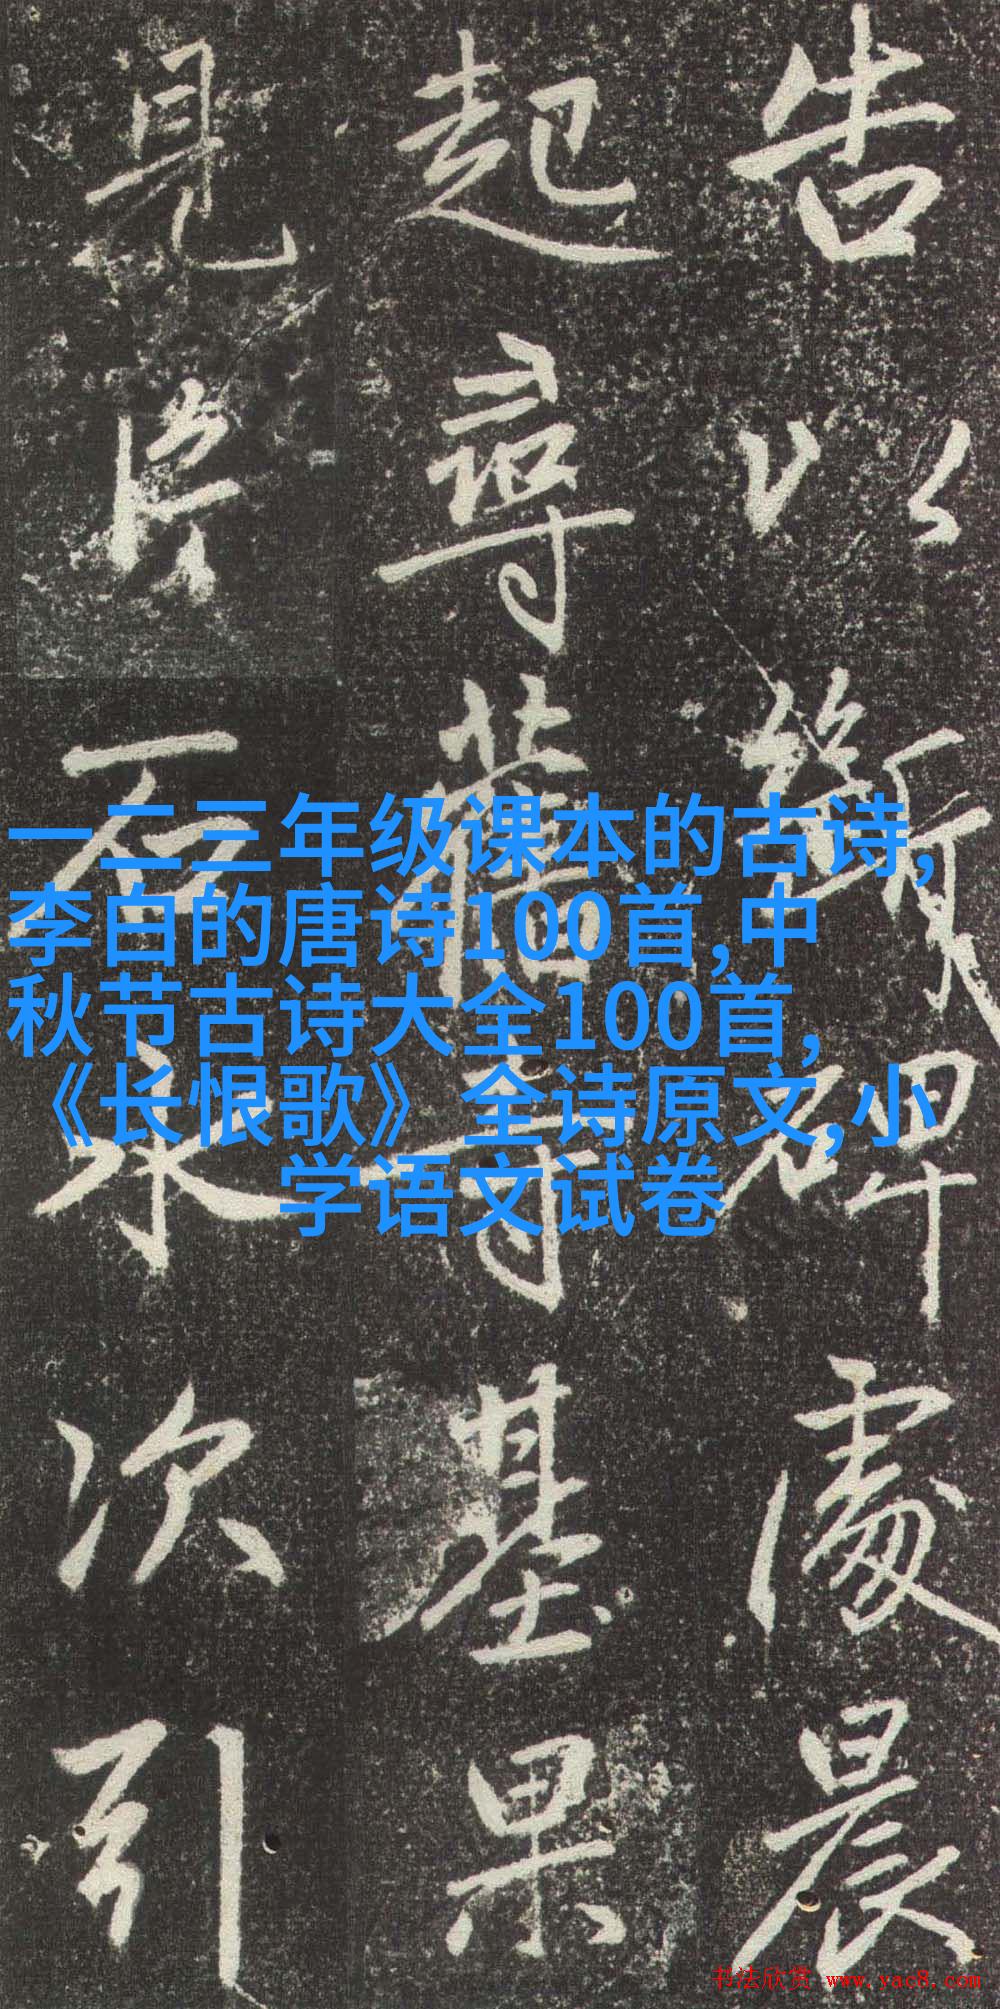 告以碑處晨
起尋舊寺基果
見片石次引
一二三年级课本的古诗,
李白的唐诗100首,中
秋节古诗大全100首,
《长恨歌》全诗原文,小
学语文试卷
书法欣赏 www.yac8.com